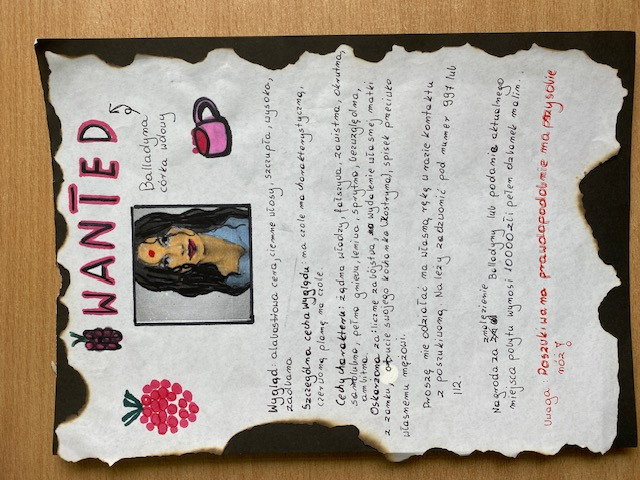 WANTED
Balladyna
córka wdowy
Wygląd: alabastrowa cera, ciemne włosy, szczupła, wysoka,
zadbana
Szczególna cecha wyglądu: na czole ma charakterystyczną,
czerwoną plamę na czole.
Cechy charakteru: żądna władzy, fałszywa, zawistna, okrutna,
samolubna, pełna gniewu, leniwa, sprytna, bezwzględna,
ambitna.
Oskarżona za: liczne zabójstwa, wydalenie własnej matki
z zamku, otrucie swojego kochanka (Kostryna), spisek przeciwko
własnemu mężowi.
Proszę nie działać na własną rękę w razie kontaktu
z poszukiwaną. Należy zadzwonić pod numer 997 lub
112.
Nagroda za znalezienie Balladyny lub podanie aktualnego
miejsca pobytu wynosi 10000 zł i pełen dzbanek malin.
Uwaga! Poszukiwana prawdopodobnie ma przy sobie
nóż!